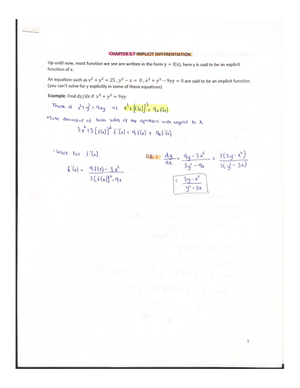 CHAPTER 3.7 IMPLICIT DIFFERENTIATION:
Up until now, most function we see are written in the form y = f(x), here y is said to be an explicit
function of x.
An equation such as x² + y² = 25 , y² − x = 0 , x³ + y³ − 9xy = 0 are said to be an implicit function.
(you can't solve for y explicitly in some of these equations)
Example: Find dy/dx if x³ + y³ = 9xy
Think of x³ + y³ = 9xy as x³ + [f(x)]³ = 9x f(x)
Take derivative of both sides of the equation with respect to x
3x² + 3[f(x)]² f'(x) = 9f(x) + 9x f'(x)
Solve for f'(x) OR : dy/dx = (9y − 3x²)/(3y² − 9x) = 3(3y − x²)/3(y² − 3x)
f'(x) = (9f(x) − 3x²)/(3[f(x)]² − 9x)
= (3y − x²)/(y² − 3x)
1